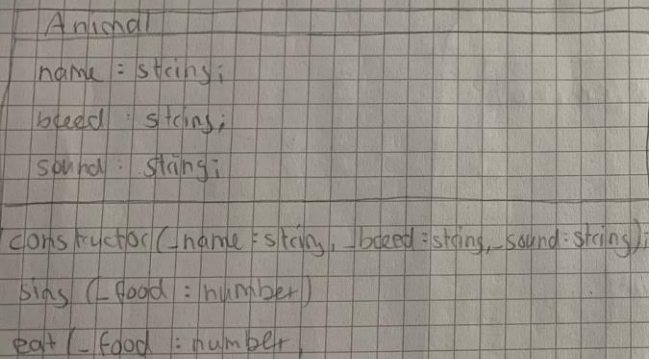 Animal
name : string;
breed : string;
sound : string;
constructor(_name : string, _breed : string, _sound : string);
sing (_food : number)
eat (_food : number,